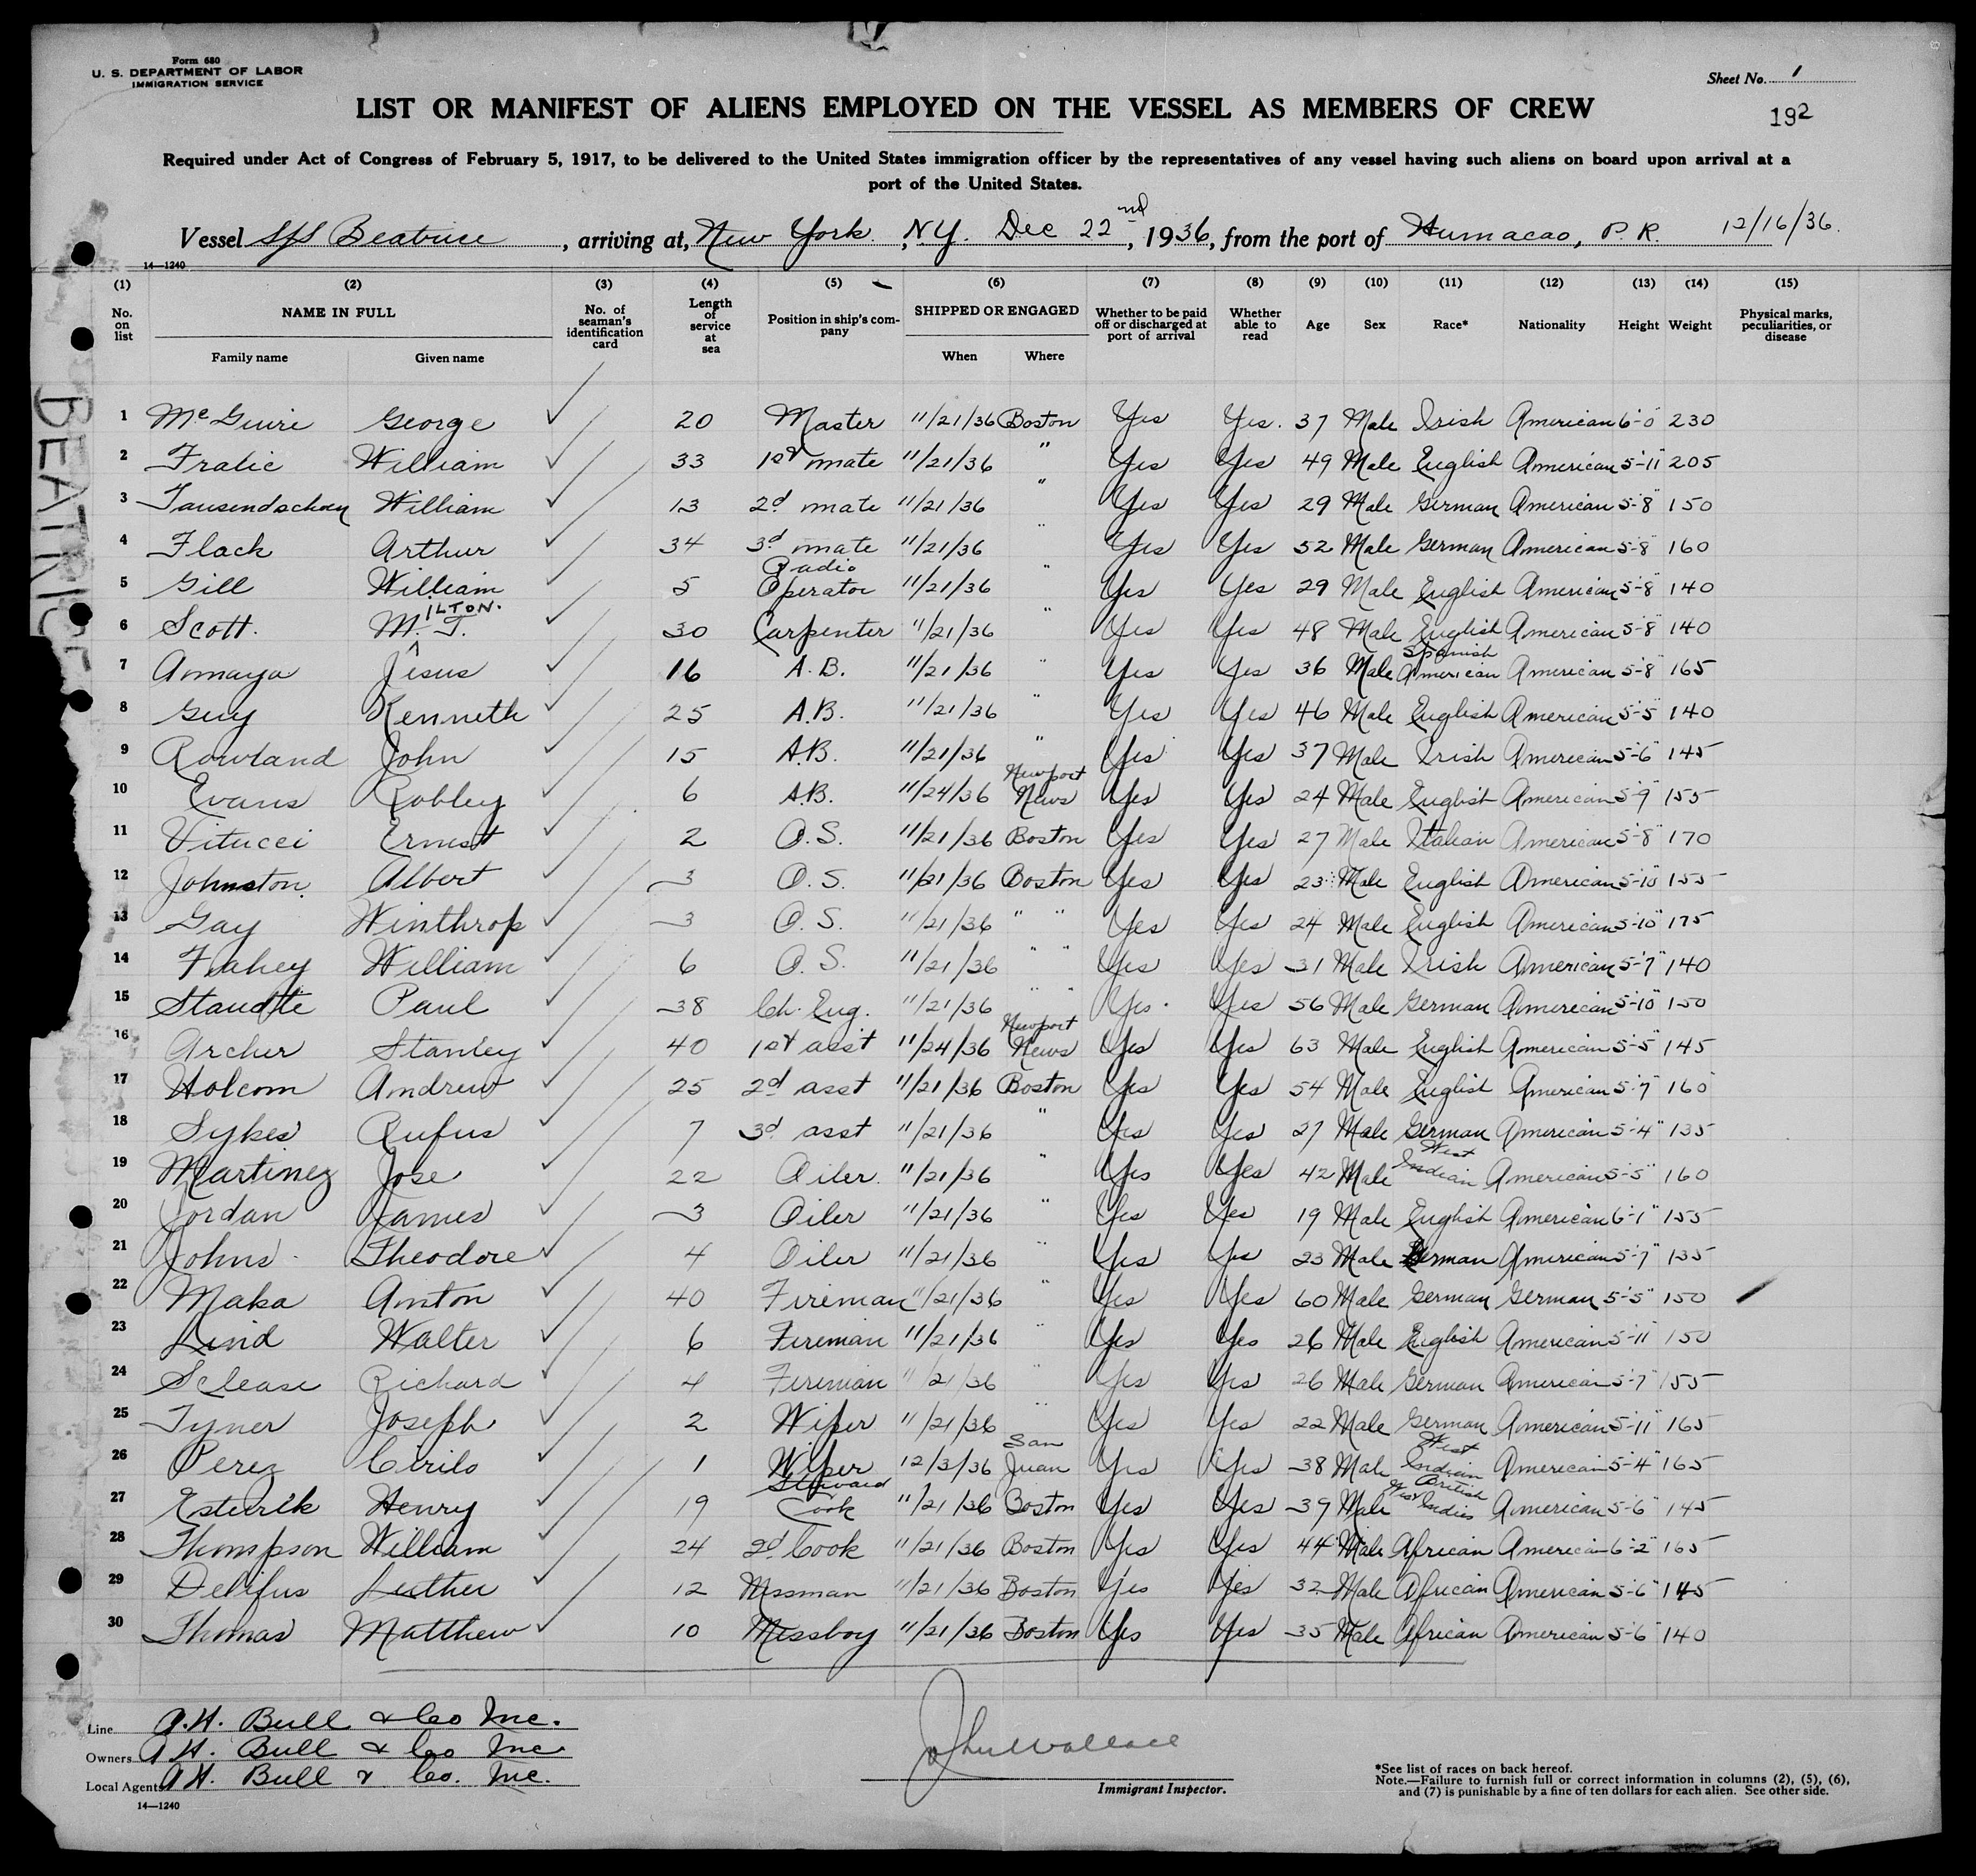 Form 680
U. S. DEPARTMENT OF LABOR
IMMIGRATION SERVICE
Sheet No. 1
192
LIST OR MANIFEST OF ALIENS EMPLOYED ON THE VESSEL AS MEMBERS OF CREW
Required under Act of Congress of February 5, 1917, to be delivered to the United States immigration officer by the representatives of any vessel having such aliens on board upon arrival at a
port of the United States.
Vessel S/S Beatrice, arriving at, New York, N.Y. Dec 22nd, 1936, from the port of Humacao, P. R. 12/16/36.
14—1240
(1) (2) (3) (4) (5) (6) (7) (8) (9) (10) (11) (12) (13) (14) (15)
No. on list NAME IN FULL Family name Given name No. of seaman's identification card Length of service at sea Position in ship's company SHIPPED OR ENGAGED When Where Whether to be paid off or discharged at port of arrival Whether able to read Age Sex Race* Nationality Height Weight Physical marks, peculiarities, or disease
BEATRICE
1 McGuire George 20 Master 11/21/36 Boston Yes Yes. 37 Male Irish American 6'-0" 230
2 Fralic William 33 1st mate 11/21/36 " Yes Yes 49 Male English American 5'-11" 205
3 Tausendschoen William 13 2d mate 11/21/36 " Yes Yes 29 Male German American 5'-8" 150
4 Flack Arthur 34 3d mate 11/21/36 " Yes Yes 52 Male German American 5'-8" 160
5 Gill William 5 Radio Operator 11/21/36 " Yes Yes 29 Male English American 5'-8" 140
6 Scott. M. ILTON. J. 30 Carpenter 11/21/36 " Yes Yes 48 Male English American 5'-8" 140
7 Anmaya Jesus 16 A.B. 11/21/36 " Yes Yes 36 Male Spanish American American 5'-8" 165
8 Guy Kenneth 25 A.B. 11/21/36 " Yes Yes 46 Male English American 5'-5" 140
9 Rowland John 15 A.B. 11/21/36 " Yes Yes 37 Male Irish American 5'-6" 145
10 Evans Robley 6 A.B. 11/24/36 Newport News Yes Yes 24 Male English American 5'-9" 155
11 Vitucci Ernest 2 O.S. 11/21/36 Boston Yes Yes 27 Male Italian American 5'-8" 170
12 Johnston Albert 3 O.S. 11/21/36 Boston Yes Yes 23 Male English American 5'-10" 155
13 Gay Winthrop 3 O.S. 11/21/36 " " Yes Yes 24 Male English American 5'-10" 175
14 Fahey William 6 O.S. 11/21/36 " " Yes Yes 31 Male Irish American 5'-7" 140
15 Staudte Paul 38 Ch. Eng. 11/21/36 " " Yes. Yes 56 Male German American 5'-10" 150
16 Archer Stanley 40 1st asst 11/24/36 Newport News Yes Yes 63 Male English American 5'-5" 145
17 Holcom Andrew 25 2d asst 11/21/36 Boston Yes Yes 54 Male English American 5'-7" 160
18 Sykes Rufus 7 3d asst 11/21/36 " Yes Yes 27 Male German American 5'-4" 135
19 Martinez Jose 22 Oiler 11/21/36 " Yes Yes 42 Male West Indian American 5'-5" 160
20 Jordan James 3 Oiler 11/21/36 " Yes Yes 19 Male English American 6'-1" 155
21 Johns Theodore 4 Oiler 11/21/36 " Yes Yes 23 Male German American 5'-7" 135
22 Maka Anton 40 Fireman 11/21/36 " Yes Yes 60 Male German German 5'-5" 150
23 Lind Walter 6 Fireman 11/21/36 " Yes Yes 26 Male English American 5'-11" 150
24 Sclease Richard 4 Fireman 11/21/36 " Yes Yes 26 Male German American 5'-7" 155
25 Tyner Joseph 2 Wiper 11/21/36 " Yes Yes 22 Male German American 5'-11" 165
26 Perez Cirilo 1 Wiper 12/3/36 San Juan Yes Yes 38 Male West Indian American 5'-4" 165
27 Esturik Henry 19 Steward Cook 11/21/36 Boston Yes Yes 39 Male British West Indies American 5'-6" 145
28 Thompson William 24 2d Cook 11/21/36 Boston Yes Yes 44 Male African American 6'-2" 165
29 Delifus Luther 12 Messman 11/21/36 Boston Yes Yes 32 Male African American 5'-6" 145
30 Thomas Matthew 10 Messboy 11/21/36 Boston Yes Yes 35 Male African American 5'-6" 140
Line A.H. Bull & Co Inc.
Owners A.H. Bull & Co Inc
Local Agents A.H. Bull & Co. Inc.
14—1240
John Wallace
Immigrant Inspector.
*See list of races on back hereof.
Note.—Failure to furnish full or correct information in columns (2), (5), (6),
and (7) is punishable by a fine of ten dollars for each alien. See other side.